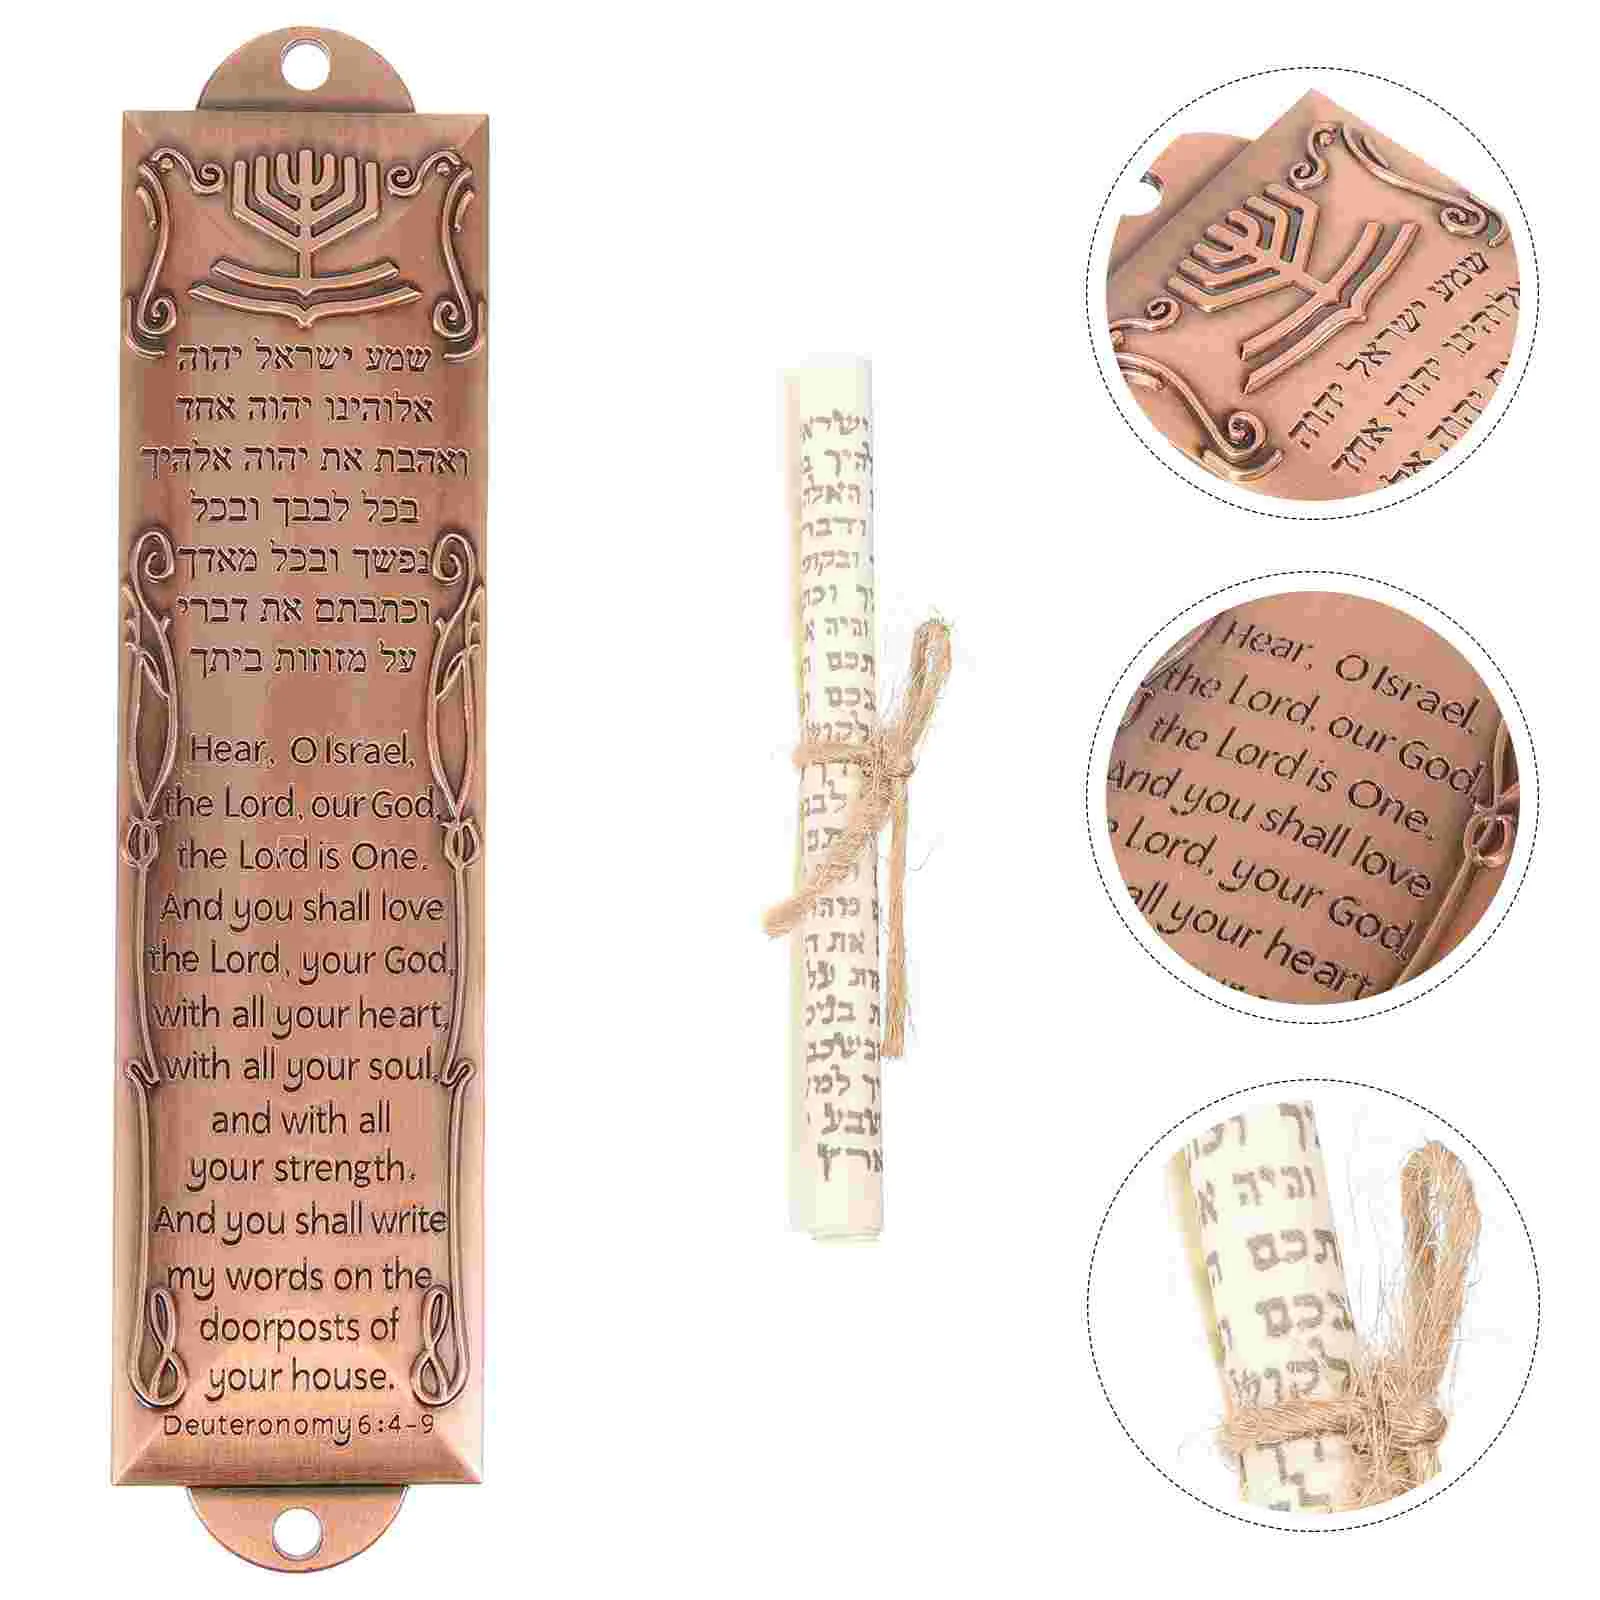 שמע ישראל יהוה
אלוהינו יהוה אחד
ואהבת את יהוה אלהיך
בכל לבבך ובכל
נפשך ובכל מאדך
וכתבתם את דברי
על מזוזות ביתך
Hear, O Israel,
the Lord, our God,
the Lord is One.
And you shall love
the Lord, your God,
with all your heart,
with all your soul,
and with all
your strength.
And you shall write
my words on the
doorposts of
your house.
Deuteronomy 6:4-9
ישרא
האל
ודבר
ובקומ
וכת
והיה א
תכם
בכם
לקוש
לבב
את ד
על
בניכ
למ
שבע
ארץ
שמע ישראל יהוה
יהוה אחד
יהוה אל
Hear, O Israel.
the Lord, our God,
the Lord is One.
And you shall love
Lord, your God,
all your heart
והיה א
תכם
בכם
לקוש